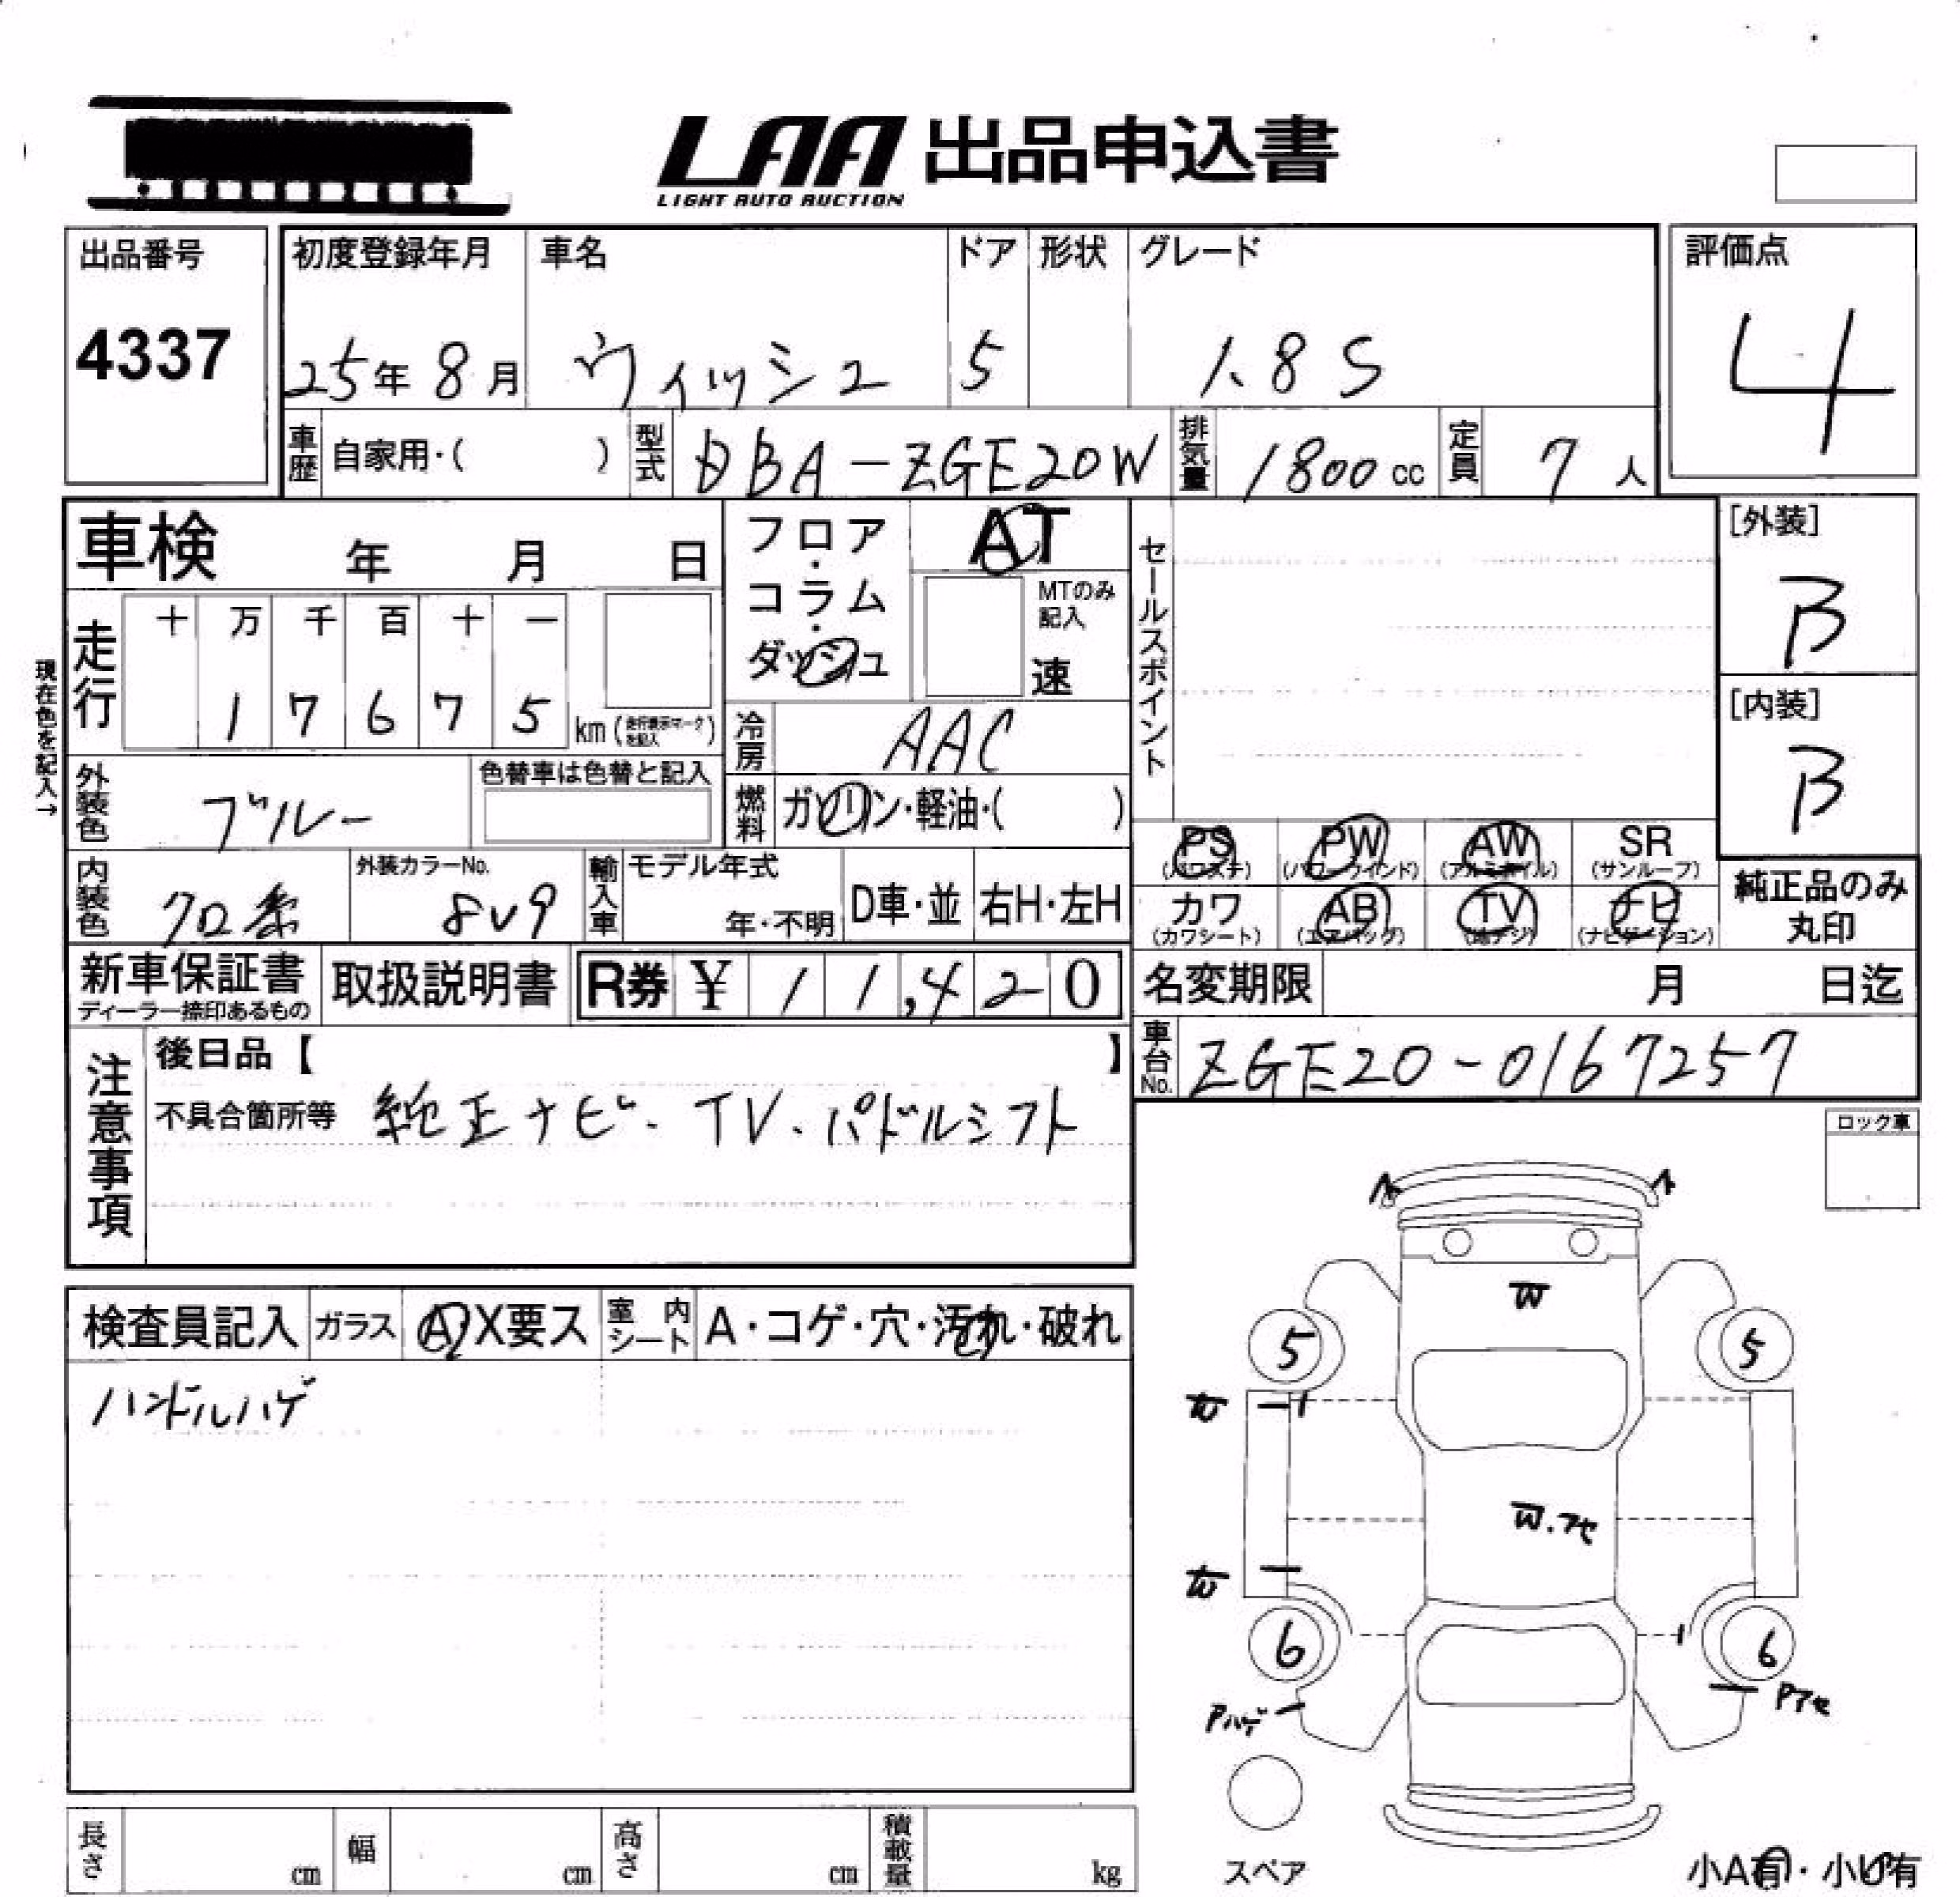 LAA 出品申込書
LIGHT AUTO AUCTION
出品番号
4337
初度登録年月 車名 ドア 形状 グレード
25年 8月 ウィッシュ 5 1.8 S
評価点
4
車歴 自家用・( ) 型式 DBA-ZGE20W 排気量 1800 cc 定員 7 人
車検 年 月 日
フロア・コラム・ダッシュ
AT
MTのみ記入
速
セールスポイント
[外装]
B
[内装]
B
現在色を記入→
走行 十 万 千 百 十 一
1 7 6 7 5 km (走行表示マークを記入)
冷房 AAC
外装色 ブルー 色替車は色替と記入
燃料 ガソリン・軽油・( )
PS (パワステ) PW (パワーウインド) AW (アルミホイル) SR (サンルーフ)
カワ (カワシート) AB (エアバッグ) TV (地デジ) ナビ (ナビゲーション)
純正品のみ
丸印
内装色 クロ系 外装カラーNo. 8V9 輸入車 モデル年式 年・不明 D車・並 右H・左H
新車保証書 取扱説明書 R券 ¥ 1 1,4 2 0
ディーラー捺印あるもの
名変期限 月 日迄
車台No. ZGE20-0167257
注意事項
後日品【 】
不具合箇所等 純正ナビ・TV・パドルシフト
ロック車
検査員記入 ガラス A・X要ス 室内シート A・コゲ・穴・汚れ・破れ
ハンドルハゲ
W
5 5
W
W.アセ
W
6 6
Pハゲ Pアセ
スペア
小A有・小U有
長さ cm 幅 cm 高さ cm 積載量 kg